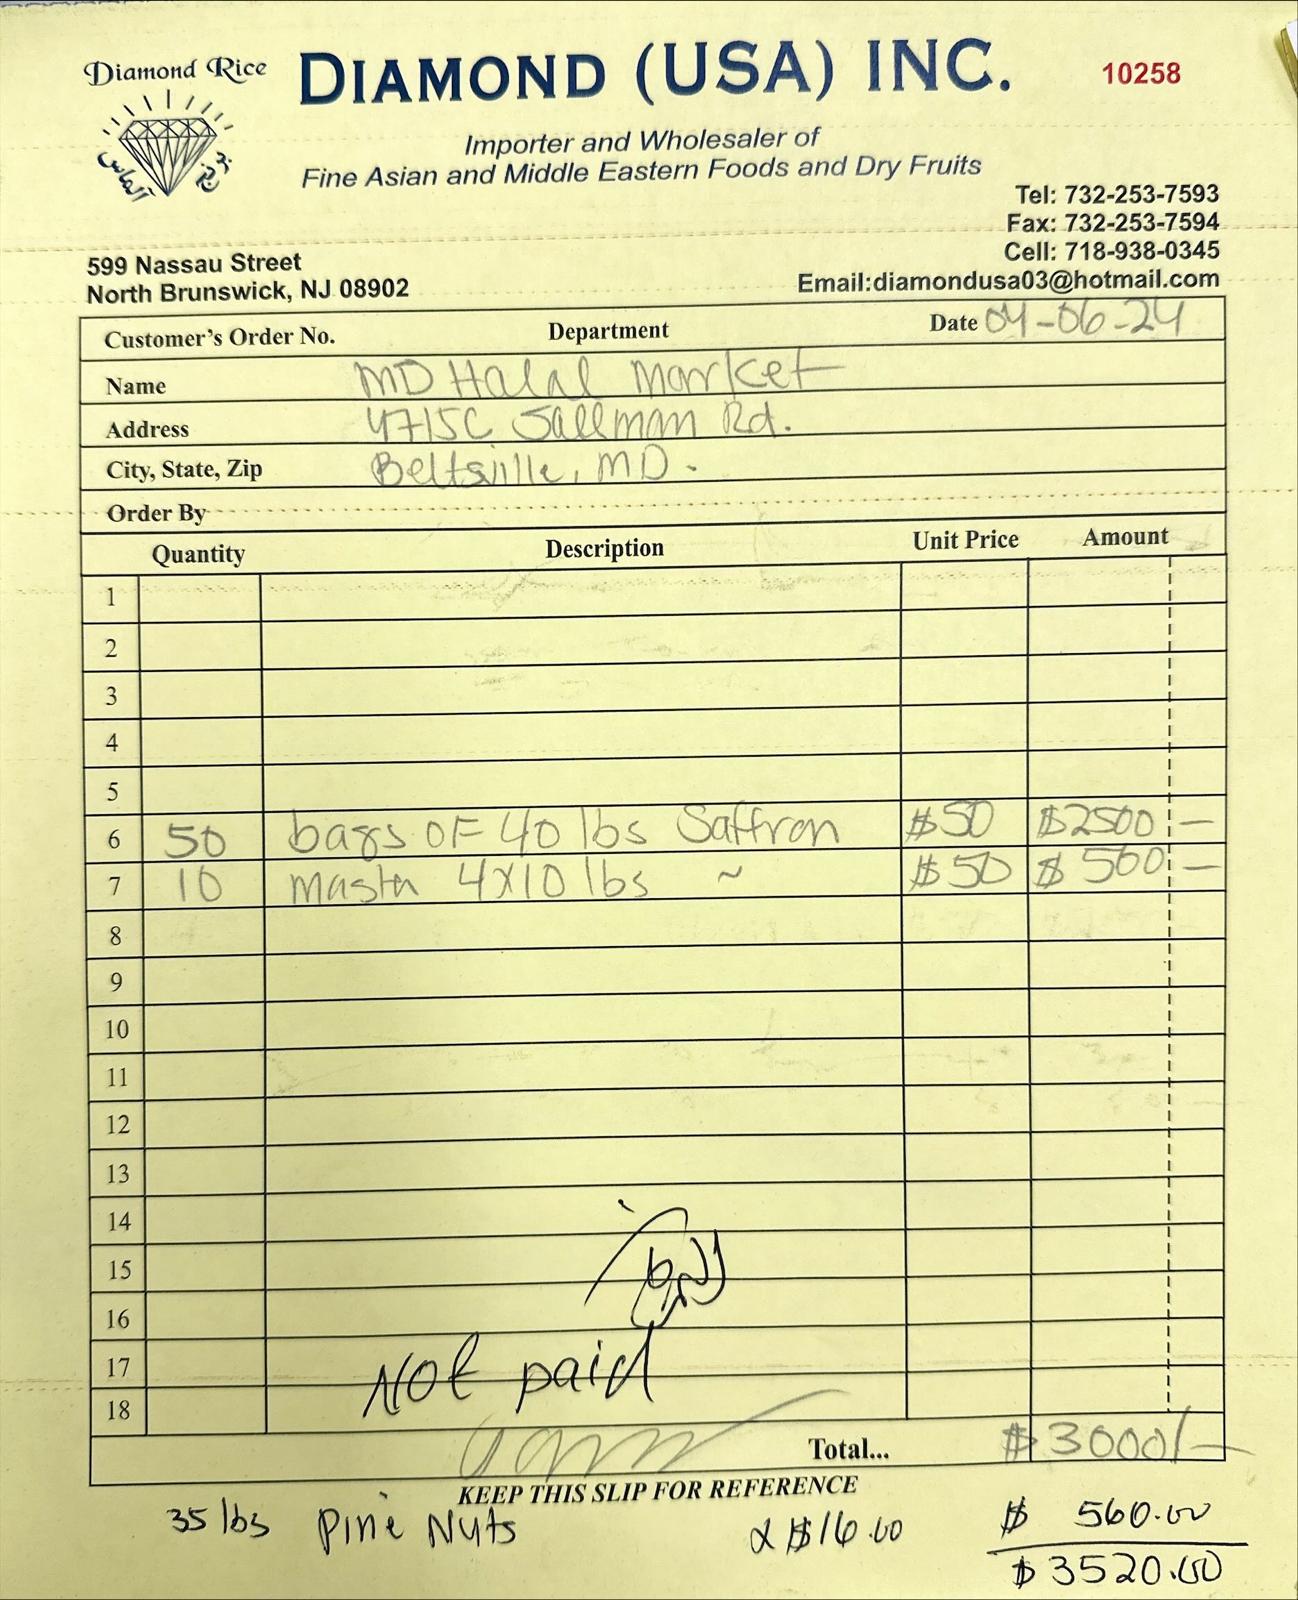 Diamond Rice
DIAMOND (USA) INC.
10258
الماس
Importer and Wholesaler of
Fine Asian and Middle Eastern Foods and Dry Fruits
Tel: 732-253-7593
Fax: 732-253-7594
Cell: 718-938-0345
Email:diamondusa03@hotmail.com
599 Nassau Street
North Brunswick, NJ 08902
Customer's Order No. Department Date 04-06-24
Name MD Halal Market
Address 4715C Sallman Rd.
City, State, Zip Beltsville, MD.
Order By
Quantity Description Unit Price Amount
1
2
3
4
5
6 50 bags OF 40 lbs Saffron $50 $2500 —
7 10 4x10 lbs ~ $50 $ 500 —
8
9
10
11
12
13
14
15
16
17 Not paid
18
Total... $3000/—
KEEP THIS SLIP FOR REFERENCE
35 lbs Pine Nuts $16.00 $ 560.00
$3520.00